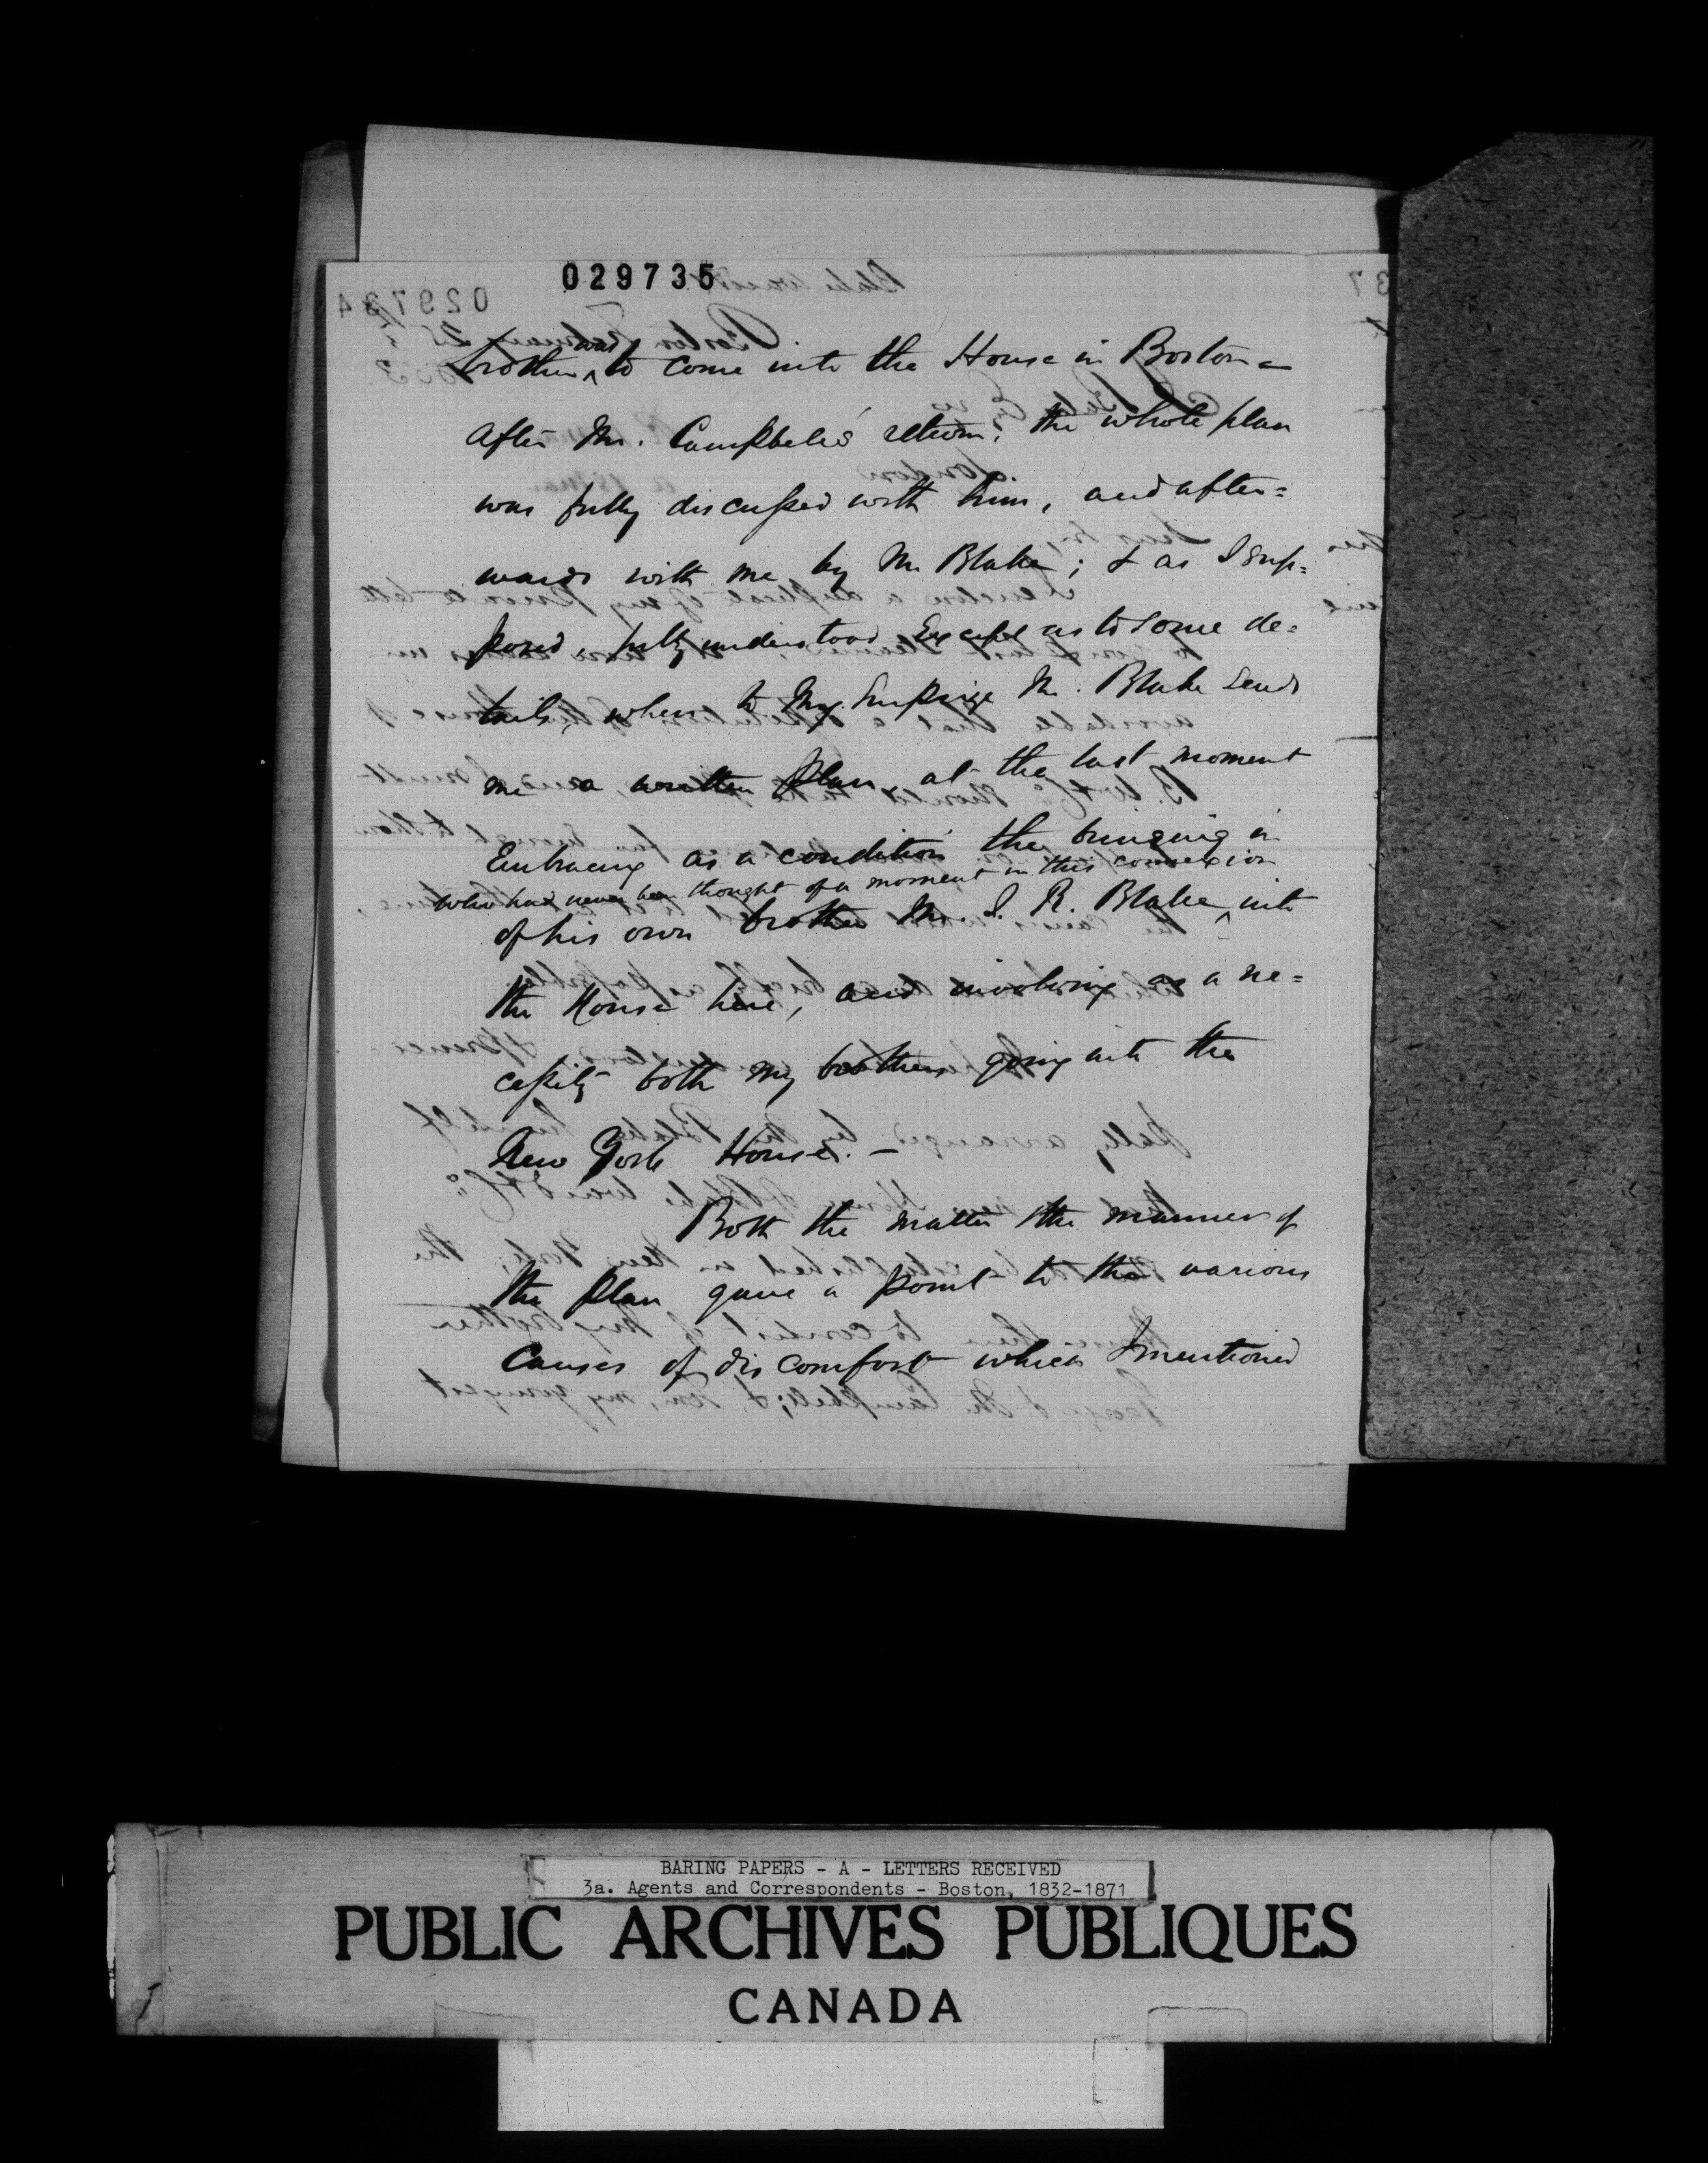 029735
brother ^was to come into the House in Boston —
After Mr. Campbell's return, the whole plan
was fully discussed with him, and after=
wards with me by Mr. Blake; & as I sup=
posed, fully understood Except as to some de=
tails, when to my Surprize Mr. Blake sends
me a written plan at the last moment
Embracing as a condition the bringing in
who had never been thought of a moment in this connexion
of his own brother Mr. S. R. Blake ^ into
the House here, and involving as a ne=
cessity both my brothers going into the
New York House. —
Both the matter & the manner of
the plan gave a point to the various
Causes of discomfort which I mentioned
BARING PAPERS - A - LETTERS RECEIVED
3a. Agents and Correspondents - Boston, 1832-1871
PUBLIC ARCHIVES PUBLIQUES
CANADA